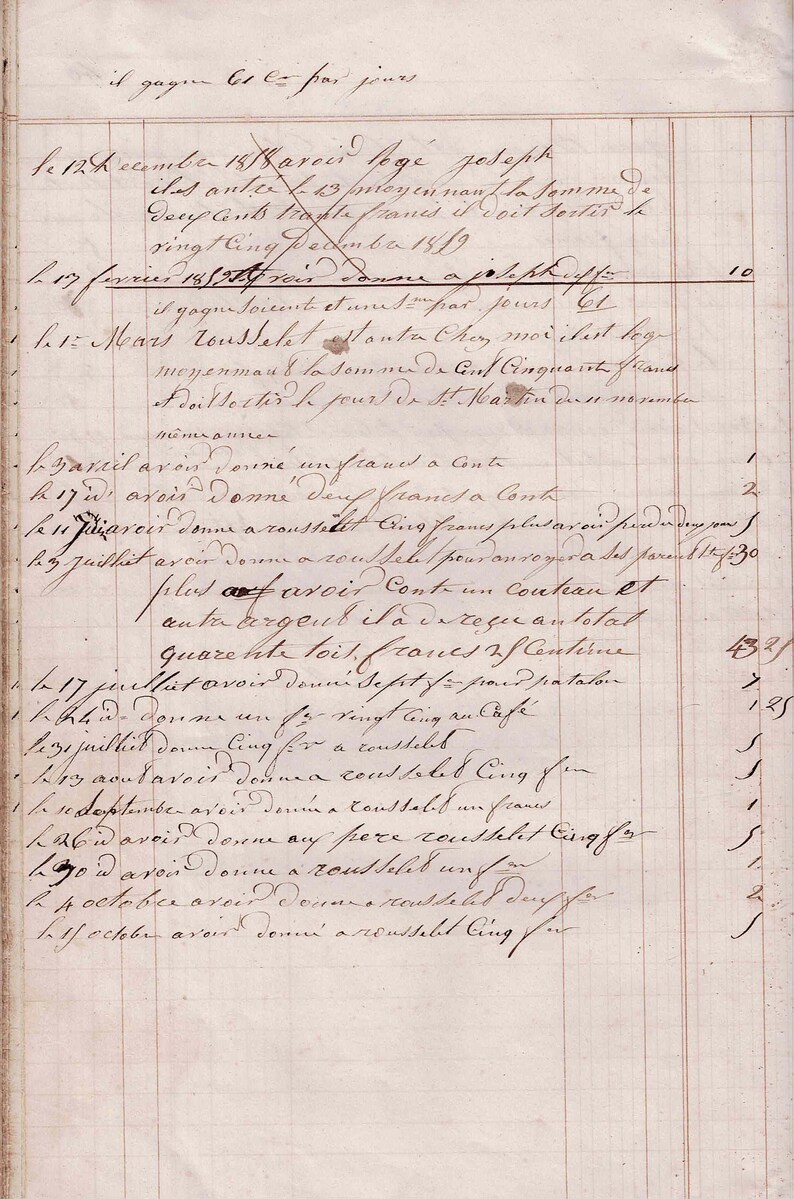 il gagne 61 c= par jours
le 12 Decembre 1858 avoir logé joseph
il es antré le 13 moyennant la somme de
deux cents trante francs il doit sortir le
vingt cinq Decembre 1859
le 13 fevrier 1859 avoir donne a joseph dix fr 10
il gagne soicente et une s=me par jours 61
le 1er Mars rousselet est antre chez moi il est loge
moyennant la somme de cent cinquante francs
et doit sortir le jours de St Martin du 11 novembre
même annee
le 3 avril avoir donné un francs a conte 1
le 17 id avoir donné deux francs a conte 2
le 11 juin avoir donne a rousselet cinq francs plus avoir perdu deux jour 5
le 3 juilliet avoir donne a rousselet pour anvoyer a ses parent fr 30
plus avoir conte un couteau et
autre argent il a de reçu au total
quarente tois francs 25 centime 43 25
le 17 juilliet avoir donné sept fr pour patalon 7
le 24 id donne un fr vingt cinq au café 1 25
le 31 juilliet donne cinq fr a rousselet 5
le 13 aout avoir donne a rousselet cinq fr 5
le 10 septembre avoir donné a rousselet un francs 1
le 26 id avoir donne aux pere rousselet cinq fr 5
le 30 id avoir donne a rousselet un fr 1
le 4 octobre avoir donne a rousselet deux fr 2
le 15 octobre avoir donné a rousselet cinq fr 5